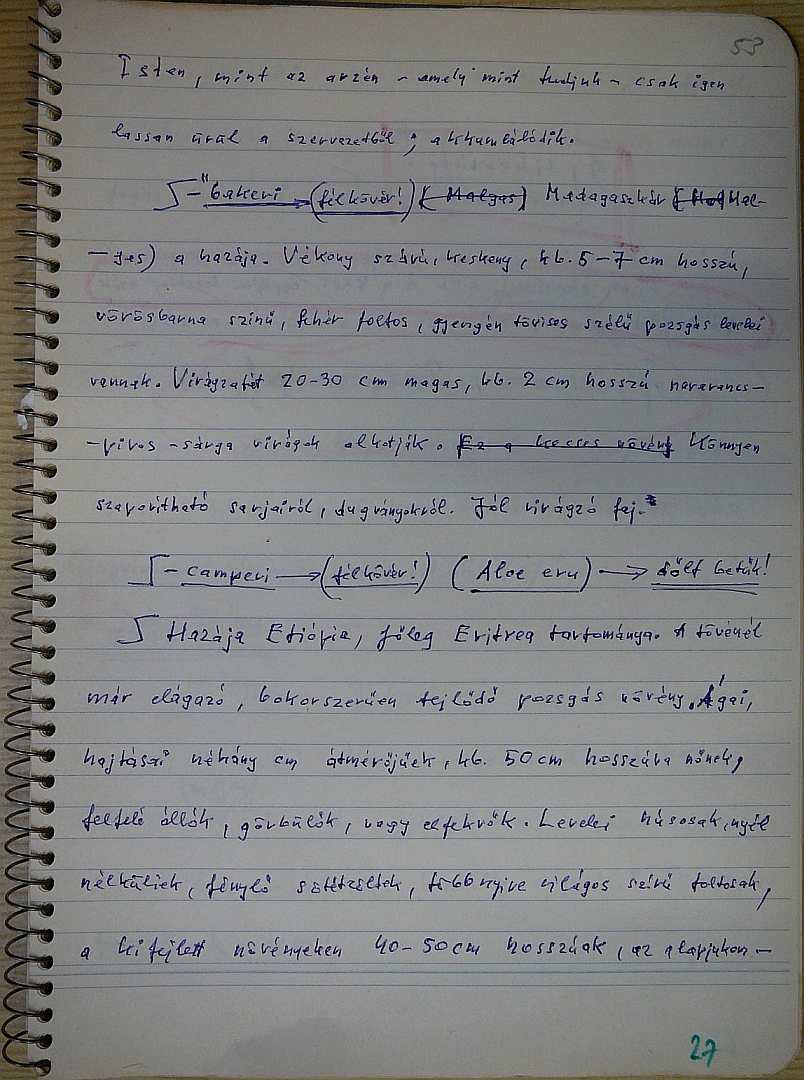 53
Isten, mint az arzén – amely mint tudjuk – csak igen
lassan ürül a szervezetből; akkumlálódik.
– "bakeri → (félkövér!) (Malgas) Madagaszkár (Mal-
– gas) a hazája. Vékony szárú, keskeny, kb. 5–7 cm hosszú,
vörösbarna színű, fehér foltos, gyengén tövises szélű pozsgás levelei
vannak. Virágzatát 20–30 cm magas, kb. 2 cm hosszú narancs–
– piros – sárga virágok alkotják. Ez a kecses növény Könnyen
szaporítható sarjairól, dugványokról. Jól virágzó faj.
– camperi → (félkövér!) (Aloe eru) → dőlt betűk!
Hazája Etiópia, főleg Eritrea tartománya. A tövénél
már elágazó, bokorszerűen fejlődő pozsgás növény. Ágai,
hajtásai néhány cm átmérőjűek, kb. 50 cm hosszúra nőnek,
felfelé állók, görbülők, vagy elfekvők. Levelei húsosak, nyél
nélküliek, fénylő sötétzöldek, többnyire világos színű foltosak,
a kifejlett növényeken 40–50 cm hosszúak, az alapjukon –
27